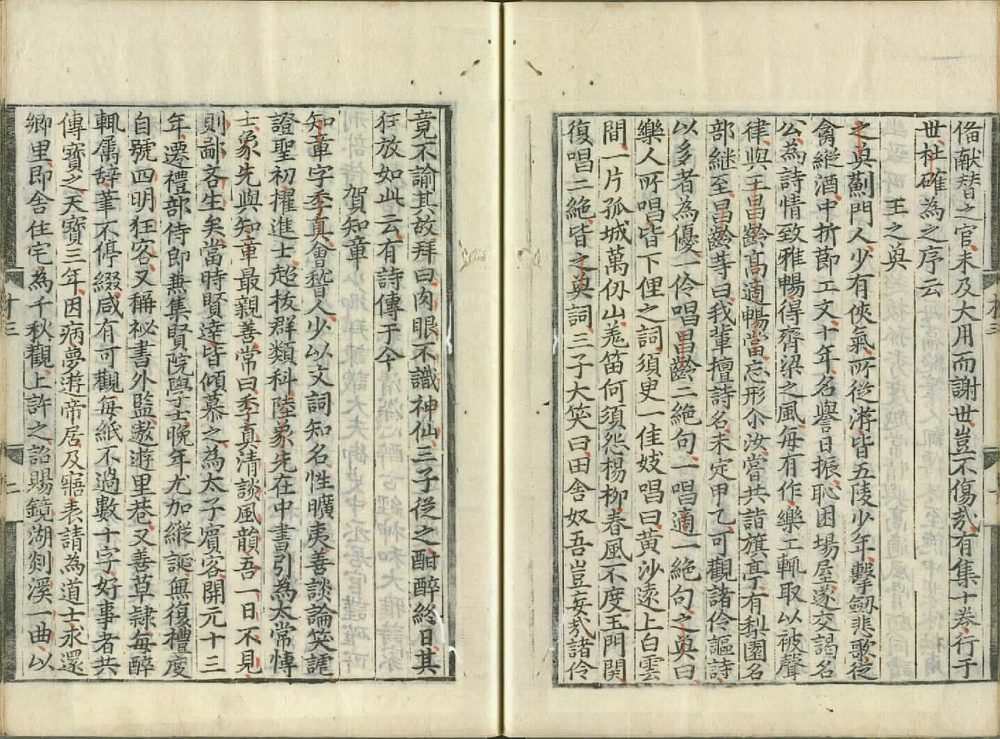 俻献替之官未及大用而謝世豈不傷哉有集十卷行于
世杜確為之序云
王之奐
之奐薊門人少有俠氣所從游皆五陵少年擊劔悲歌從
禽縱酒中折節工文十年名譽日振恥困場屋遂交謁名
公為詩情致雅暢得齊梁之風每有作樂工輒取以被聲
律與王昌齡髙適暢當忘形尒汝嘗共詣旗亭有梨園名
部継至昌齡等曰我輩擅詩名未定甲乙可觀諸伶謳詩
以多者為優一伶唱昌齡二絶句一唱適一絶句之奐曰
樂人所唱皆下俚之詞湏臾一佳妓唱曰黄沙逺上白雲
間一片孤城萬仭山羗笛何須怨楊柳春風不度玉門関
復唱二絶皆之奐詞三子大笑曰田舍奴吾豈妄哉諸伶
竟不諭其故拜曰肉眼不識神仙三子從之酣醉終日其
狂放如此云有詩傳于今
賀知章
知章字季真會稽人少以文詞知名性曠夷善談論笑謔
證聖初擢進士超抜群類科陸象先在中書引為太常慱
士象先與知章最親善常曰季真清談風韻吾一日不見
則鄙吝生矣當時賢達皆傾慕之為太子賓客開元十三
年遷禮部侍郎兼集賢院學士晚年尤加縱誕無復禮度
自號四明狂客又稱祕書外監遨遊里巷又善草隷每醉
輒属辞筆不停綴咸有可觀每紙不過數十字好事者共
傳寶之天寶三年因病夢遊帝居及寤表請為道士求還
鄉里即舍住宅為千秋觀上許之詔賜鏡湖剡溪一曲以